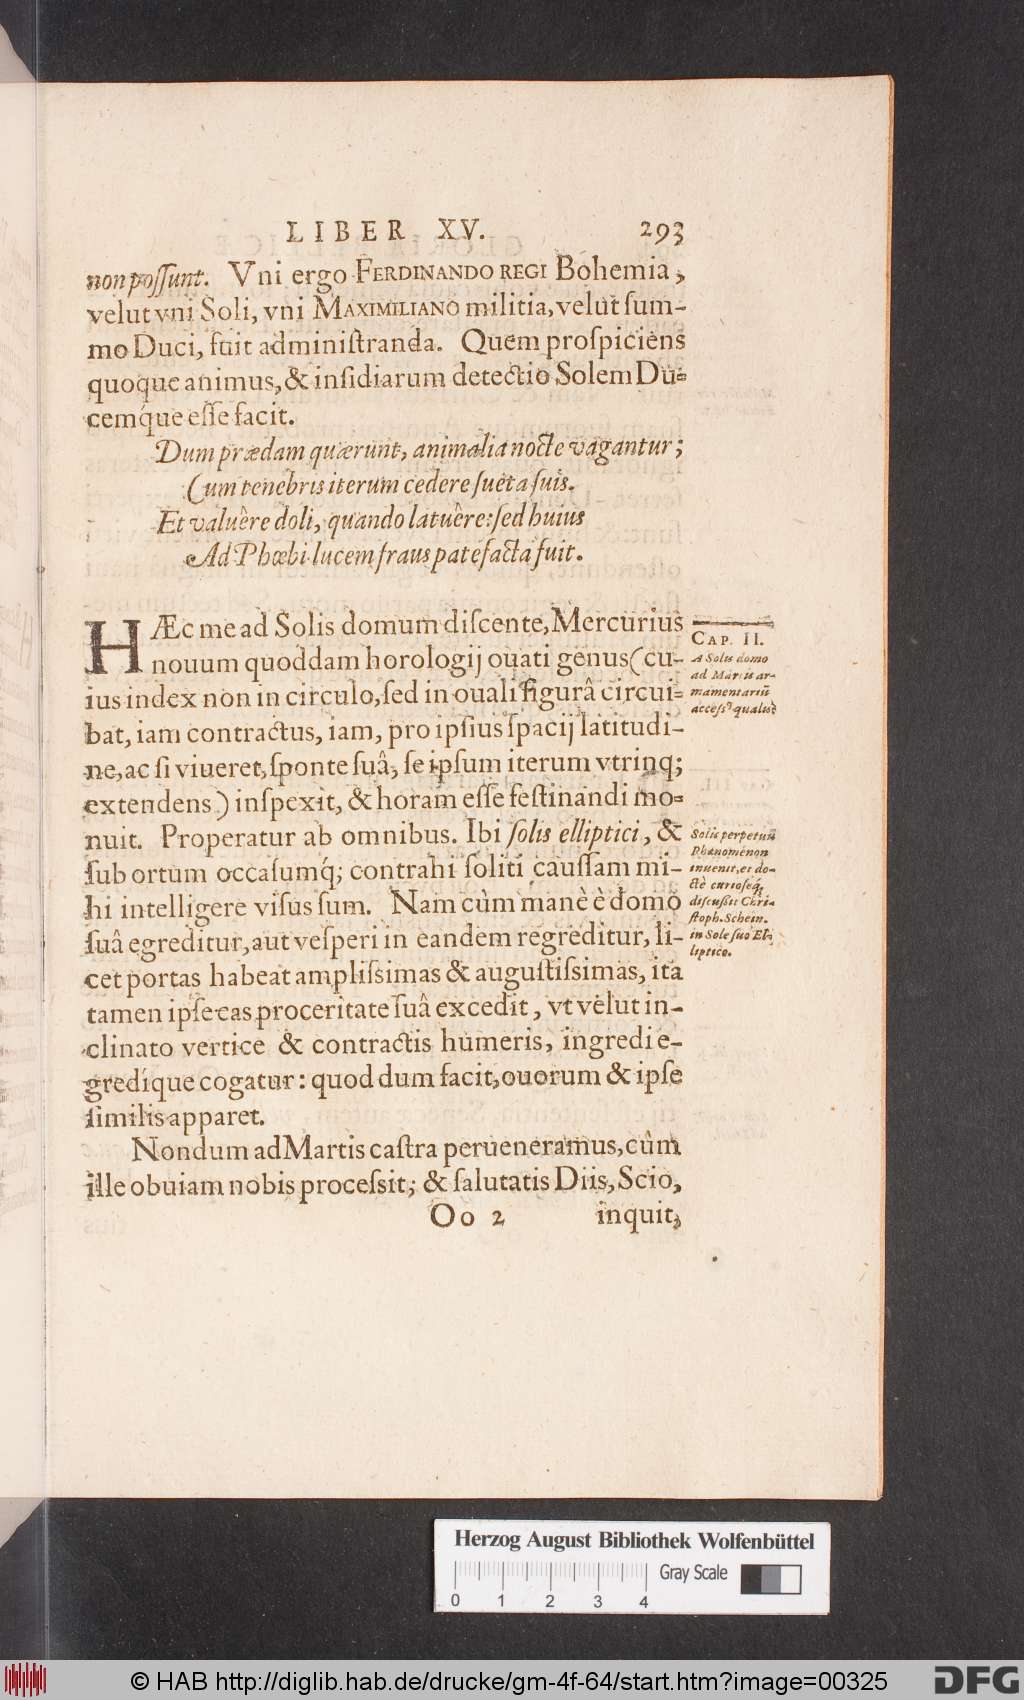 LIBER XV. 293
non poſſunt. Vni ergo FERDINANDO REGI Bohemia,
velut vni Soli, vni MAXIMILIANO militia, velut ſum-
mo Duci, fuit adminiſtranda. Quem proſpiciens
quoque animus, & inſidiarum detectio Solem Du-
cemq́ue eſſe facit.
Dum prædam quærunt, animalia nocte vagantur;
Cum tenebris iterum cedere ſueta ſuis.
Et valuêre doli, quando latuêre: ſed huius
Ad Phœbi lucem fraus patefacta fuit.
HÆc me ad Solis domum diſcente, Mercurius
nouum quoddam horologij ouati genus (cu-
ius index non in circulo, ſed in ouali figurâ circui-
bat, iam contractus, iam, pro ipſius ſpacij latitudi-
ne, ac ſi viueret, ſponte ſuâ, ſe ipſum iterum vtrinq;
extendens) inſpexit, & horam eſſe feſtinandi mo-
nuit. Properatur ab omnibus. Ibi ſolis elliptici, &
ſub ortum occaſumq́; contrahi ſoliti cauſſam mi-
hi intelligere viſus ſum. Nam cùm manè è domo
ſuâ egreditur, aut veſperi in eandem regreditur, li-
cet portas habeat ampliſsimas & auguſtiſsimas, ita
tamen ipſe eas proceritate ſuâ excedit, vt velut in-
clinato vertice & contractis humeris, ingredi e-
gredíque cogatur: quod dum facit, ouorum & ipſe
ſimilis apparet.
Nondum ad Martis caſtra perueneramus, cûm
ille obuiam nobis proceſsit; & ſalutatis Diis, Scio,
Oo 2 inquit,
CAP. II.
A Solis domo
ad Martis ar-
mamentariũ
acceſsꝰ qualis?
Solis perpetuũ
Phænomenon
inuenit, et do-
ctè curioſeq́;
diſcußit Chri-
ſtoph. Schein.
in Sole ſuo El-
liptico.
Herzog August Bibliothek Wolfenbüttel
Gray Scale
0 1 2 3 4
© HAB http://diglib.hab.de/drucke/gm-4f-64/start.htm?image=00325
DFG